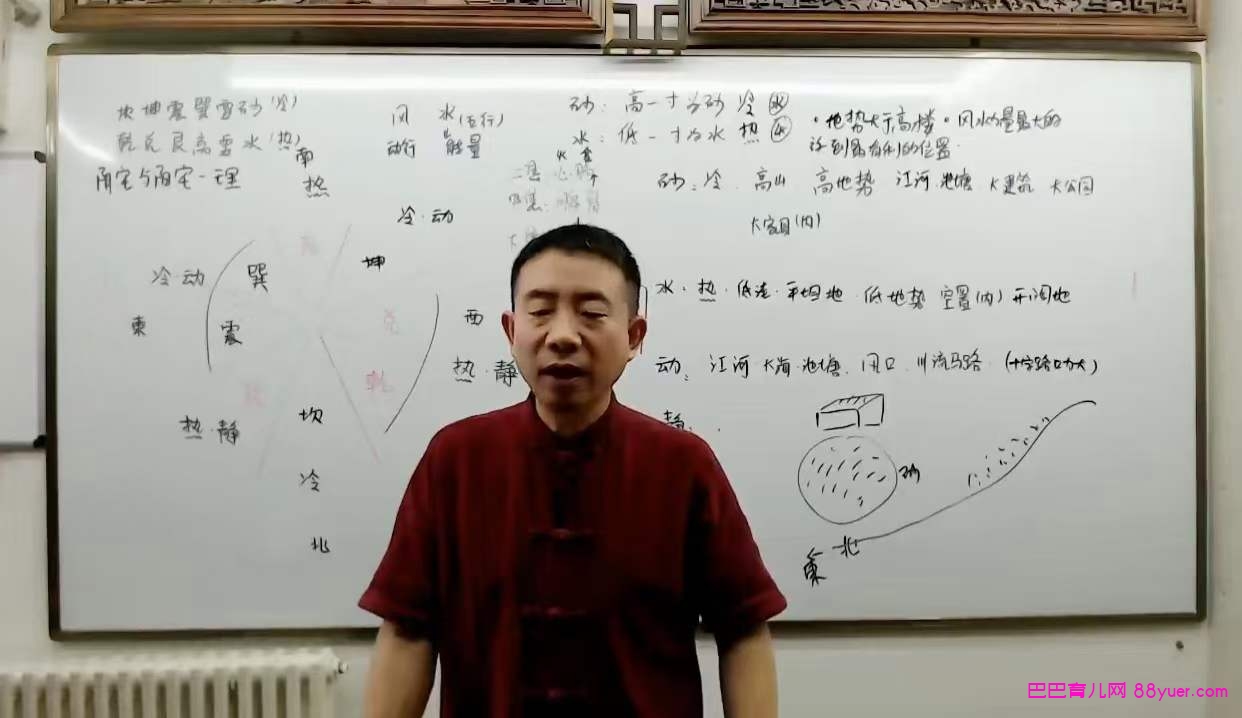 坎坤震巽要砂(冷)
乾兑艮离要水(热)
阴宅与阳宅一理
南
热
风 水(五行)
动行 能量
冷·动
冷·动
巽
坤
東
震
西
兑
热·静
乾
热·静
坎
冷
北
砂：高一寸为砂 冷 水
水：低一寸为水 热 火
·地势大于高楼·风水力量最大的
该到最有利的位置.
砂：冷.高山 高地势 江河 池塘 大建筑 大公园
大家具(内)
水·热·低洼·平坦地·低地势 空置(内) 开阔地
动：江河 大海·池塘.风口.川流马路.(十字路口力大)
静：
砂
北
東
巴巴育儿网 88yuer.com